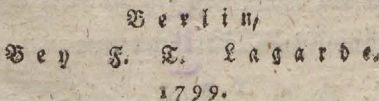 Berlin,
Bey F. T. Lagarde.
1799.